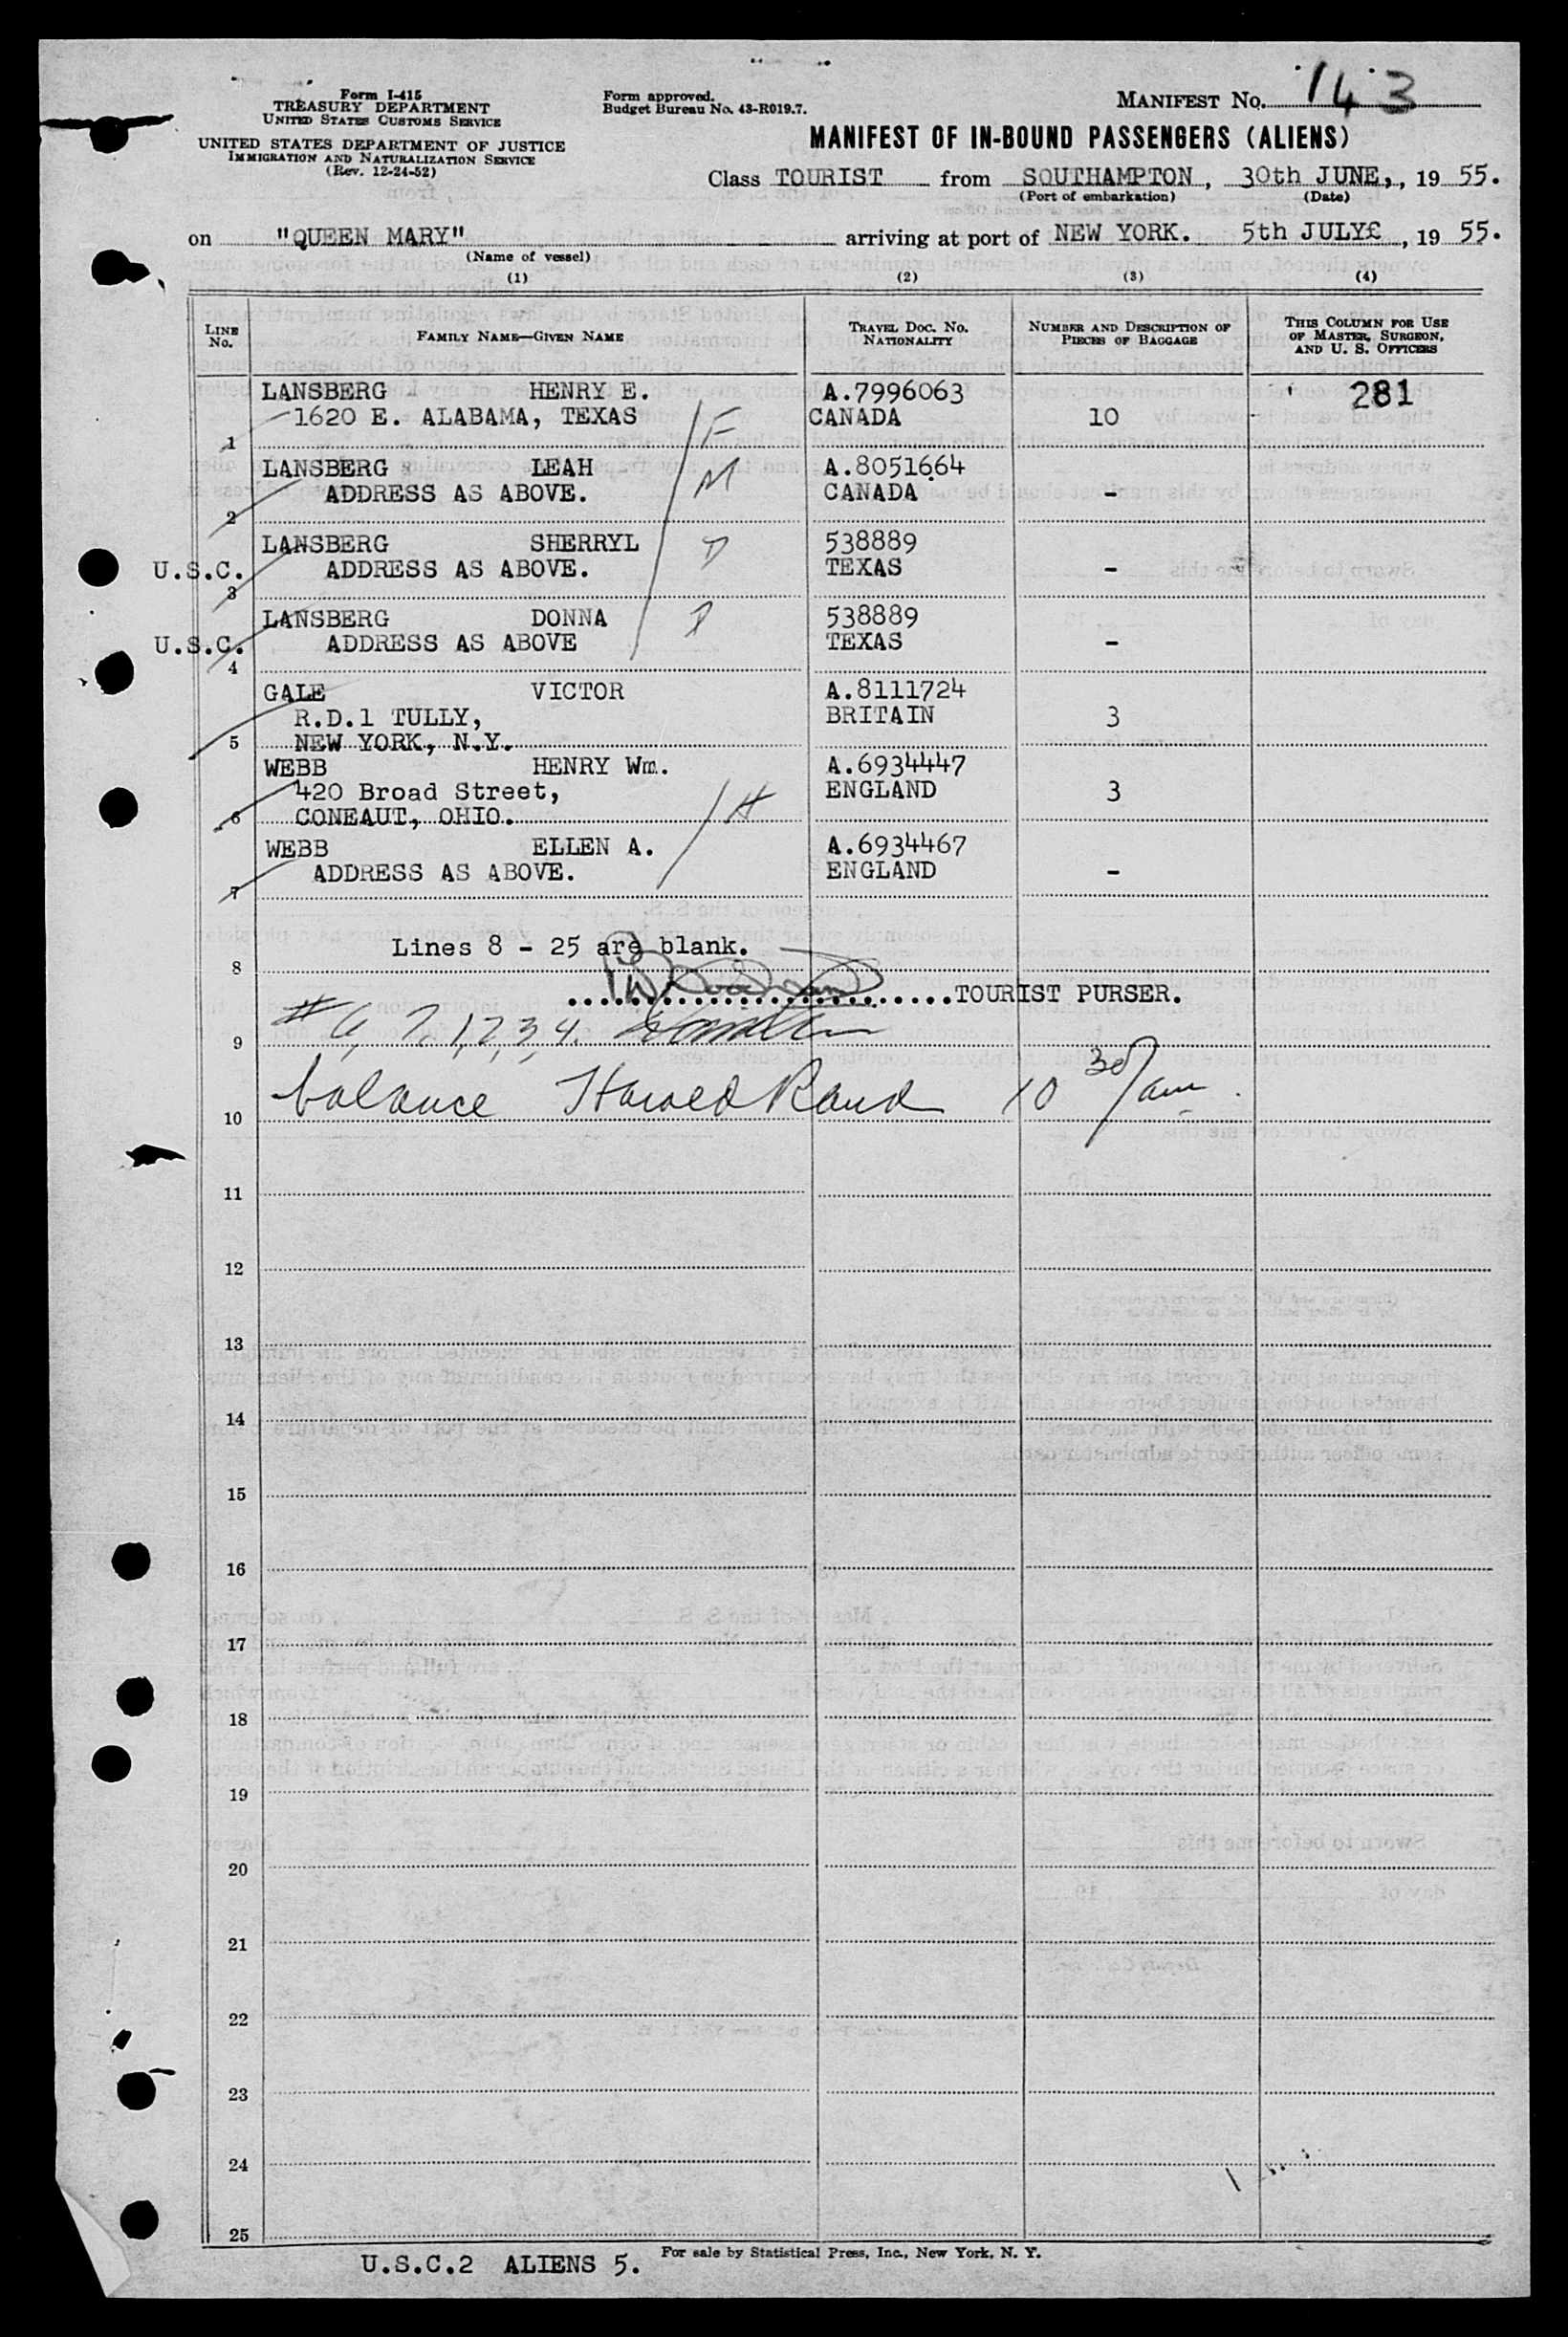 Form I-415
TREASURY DEPARTMENT
UNITED STATES CUSTOMS SERVICE
UNITED STATES DEPARTMENT OF JUSTICE
IMMIGRATION AND NATURALIZATION SERVICE
(Rev. 12-24-52)
Form approved.
Budget Bureau No. 43-R019.7.
MANIFEST NO. 143
MANIFEST OF IN-BOUND PASSENGERS (ALIENS)
Class TOURIST from SOUTHAMPTON, 30th JUNE,, 19 55.
(Port of embarkation) (Date)
on "QUEEN MARY" arriving at port of NEW YORK. 5th JULY£, 19 55.
(Name of vessel)
(1) (2) (3) (4)
LINE NO. FAMILY NAME—GIVEN NAME TRAVEL DOC. NO. NATIONALITY NUMBER AND DESCRIPTION OF PIECES OF BAGGAGE THIS COLUMN FOR USE OF MASTER, SURGEON, AND U. S. OFFICERS
LANSBERG HENRY E. A.7996063 281
1620 E. ALABAMA, TEXAS F CANADA 10
1
LANSBERG LEAH M A.8051664
ADDRESS AS ABOVE. CANADA -
2
LANSBERG SHERRYL D 538889
U.S.C. ADDRESS AS ABOVE. TEXAS -
3
LANSBERG DONNA D 538889
U.S.C. ADDRESS AS ABOVE TEXAS -
4
GALE VICTOR A.8111724
R.D.1 TULLY, BRITAIN 3
5 NEW YORK, N.Y.
WEBB HENRY Wm. A.6934447
420 Broad Street, H ENGLAND 3
6 CONEAUT, OHIO.
WEBB ELLEN A. A.6934467
ADDRESS AS ABOVE. ENGLAND -
7
Lines 8 - 25 are blank.
8
TOURIST PURSER.
# 6, 7, 1, 2, 3, 4.
9
balance Harold Rand 10 30/am.
10
11
12
13
14
15
16
17
18
19
20
21
22
23
24
25
For sale by Statistical Press, Inc., New York, N. Y.
U.S.C.2 ALIENS 5.